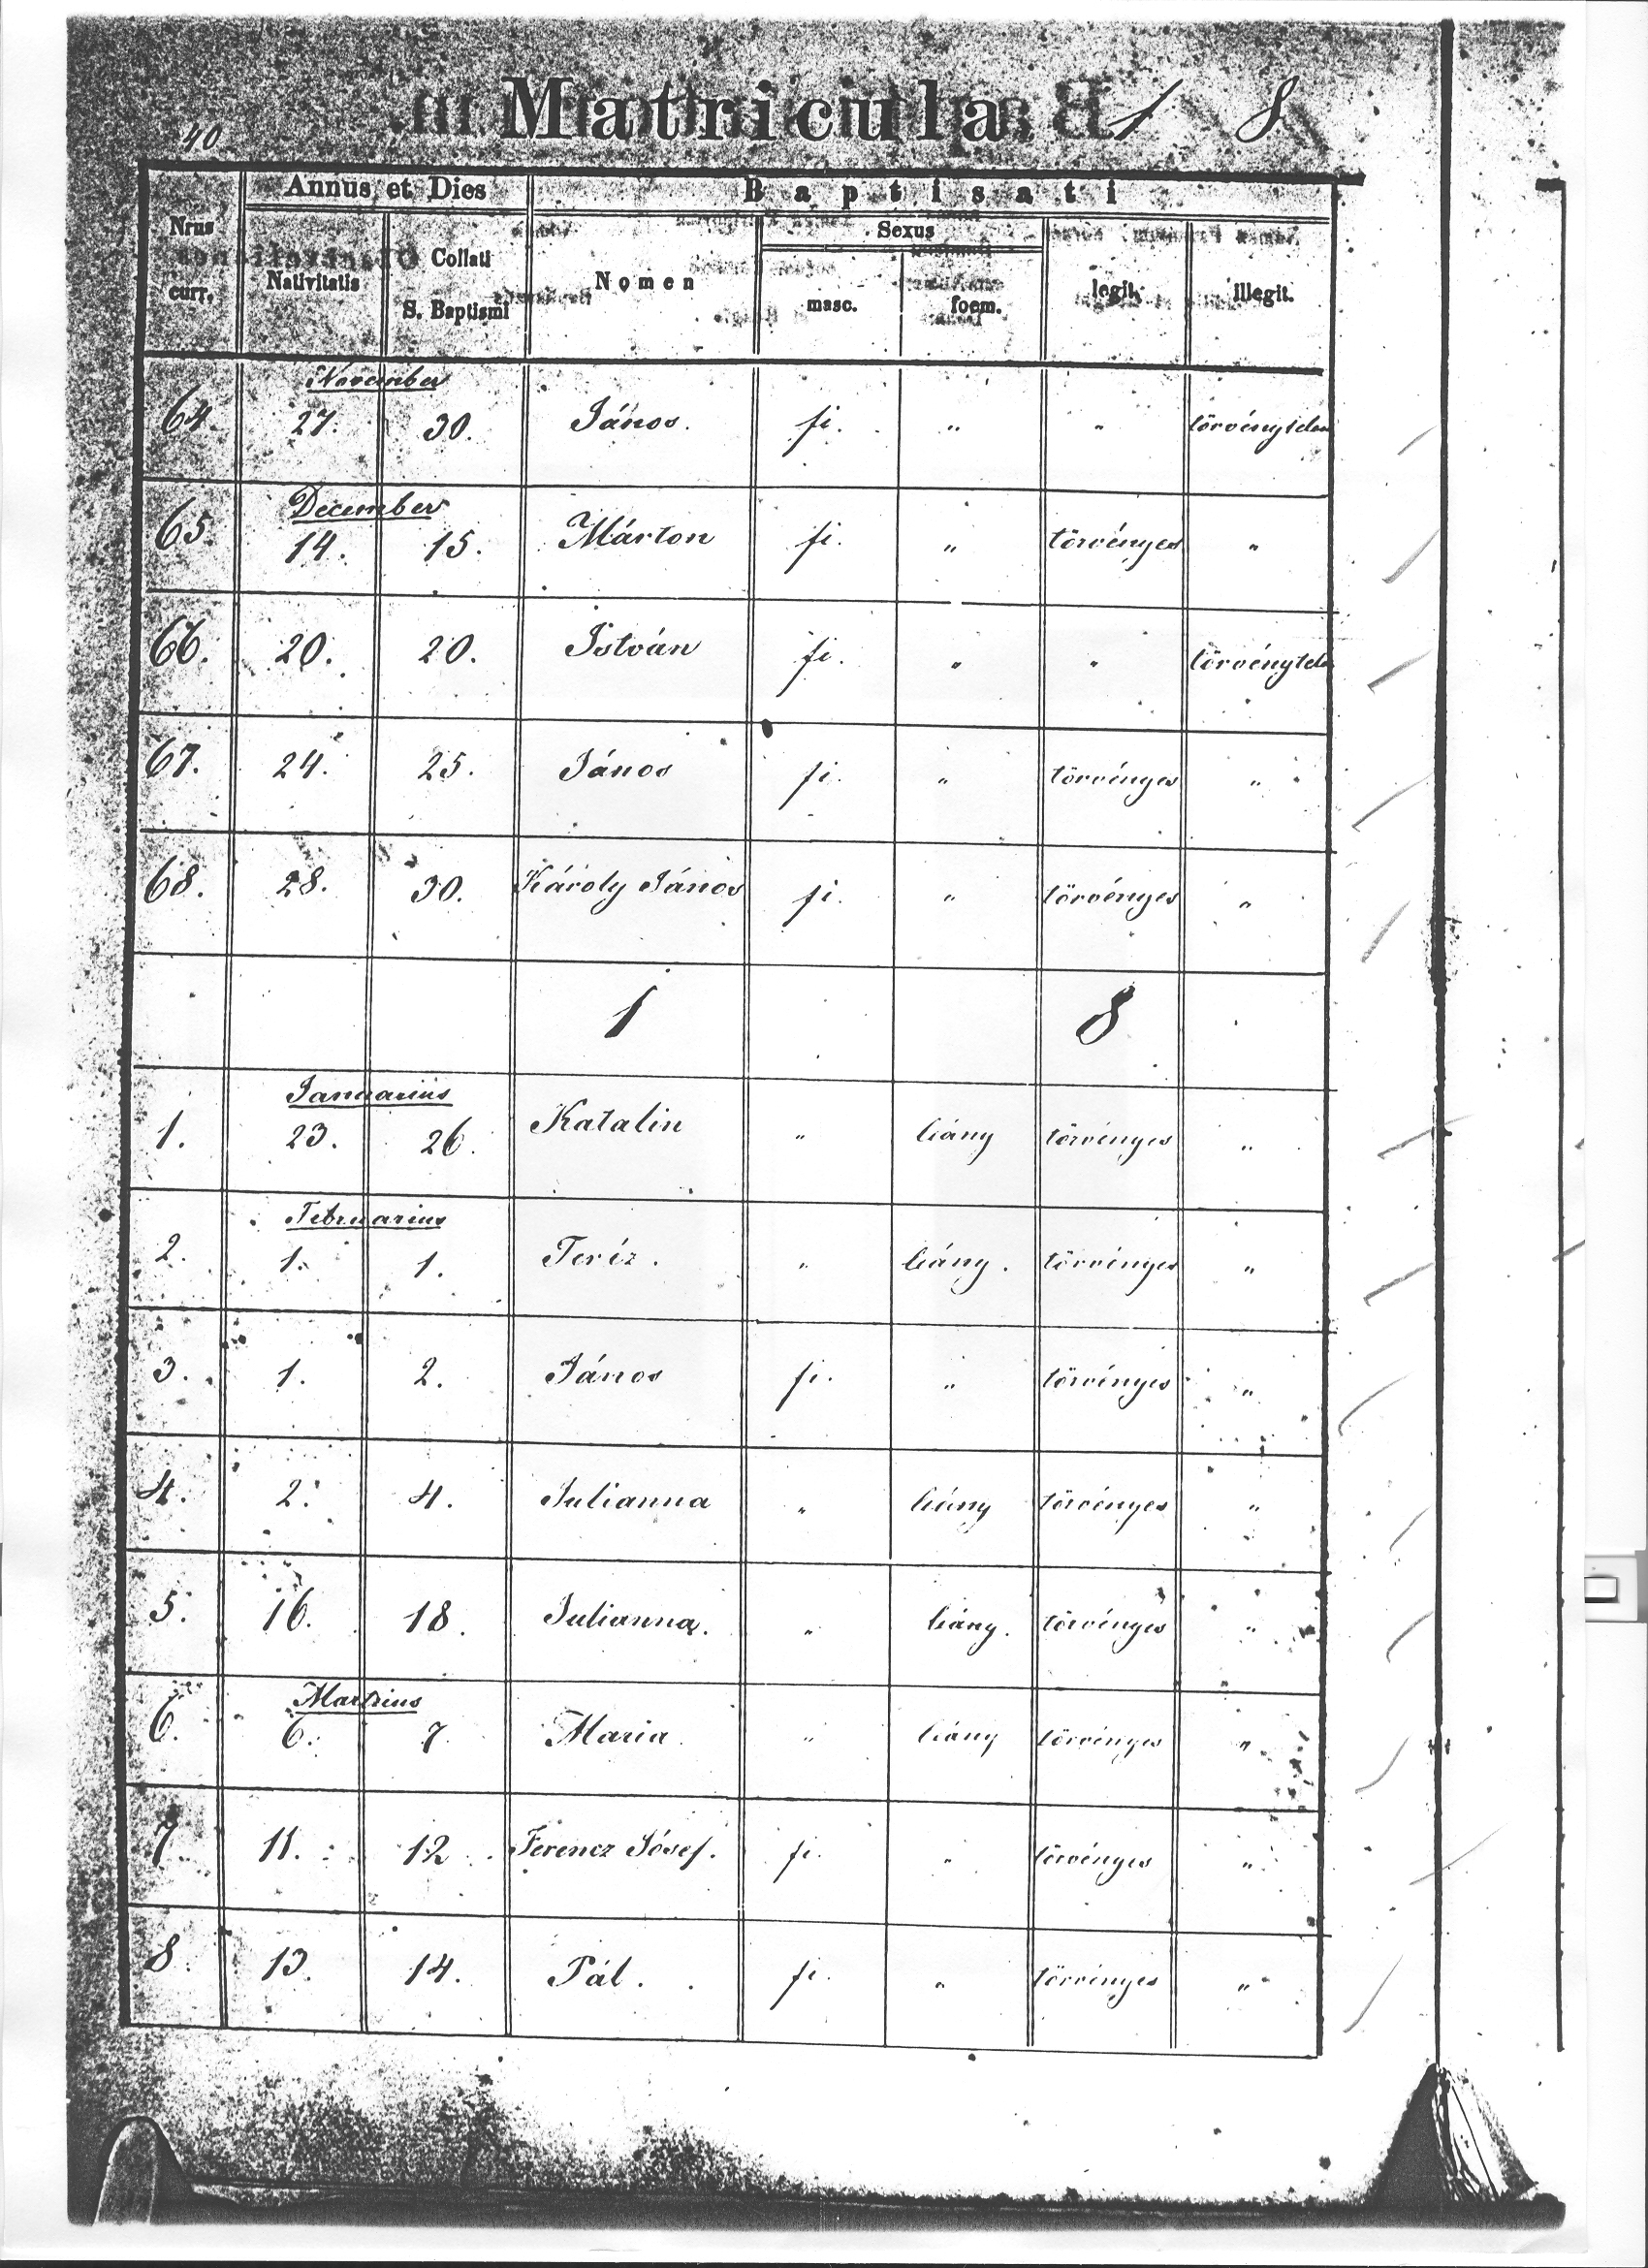 Matricula 1 8
40
Annus et Dies Baptisati
Nrus curr. Nativitatis Collati S. Baptismi Nomen Sexus masc. foem. legit. illegit.
November
64. 27. 30. János. fi. „ „ törvénytelen
December
65. 14. 15. Márton fi. „ törvényes „
66. 20. 20. István fi. „ „ törvénytelen
67. 24. 25. János fi. „ törvényes „
68. 28. 30. Károly János fi. „ törvényes „
1 8
Januarius
1. 23. 26. Katalin „ leány törvényes „
Februarius
2. 1. 1. Teréz. „ leány. törvényes „
3. 1. 2. János fi. „ törvényes „
4. 2. 4. Julianna „ leány törvényes „
5. 16. 18. Julianna. „ leány. törvényes „
Martius
6. 6. 7. Maria. „ leány törvényes „
7 11. 12. Ferencz Jósef. fi. „ törvényes „
8 13. 14. Pál. fi. „ törvényes „